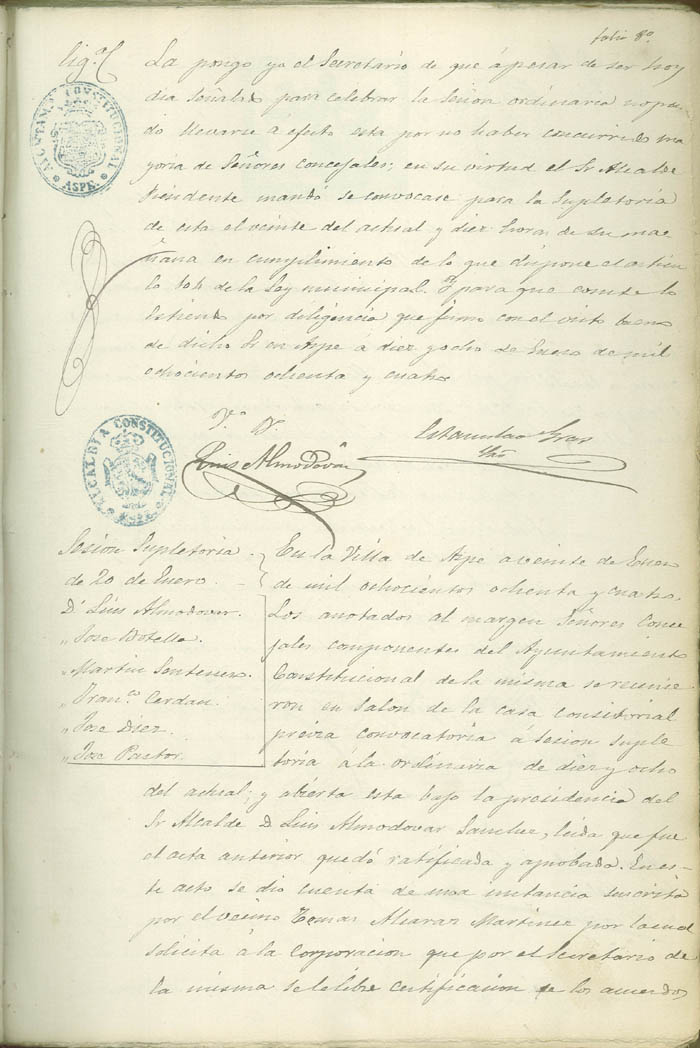 folio 8º
Ligª
La pongo yo el Secretario de que ápesar de ser hoy
dia señalado para celebrar la sesion ordinaria nopu
do llevarse á efecto esta por no haber concurrido ma
yoria de Señores concejales; en su virtud el Sr Alcalde
Presidente mandó se convocase para la supletoria
de esta el veinte del actual y diez horas de su ma
ñana en cumplimiento de lo que dispone el articu
lo 104 de la Ley municipal. Y para que conste lo
estiendo por diligencia que firmo con el visto bueno
de dicho Sr en Aspe a diez y ocho de Enero de mil
ochocientos ochenta y cuatro
AYUNTAMTO CONSTITUCIONAL
ASPE
Vº Bº
Luis Almodóvar
Estanislao Gras
Srio
ALCALDIA CONSTITUCIONAL
ASPE
Sesion Supletoria
de 20 de Enero.
D. Luis Almodovar.
" Jose Botella.
" Martin Sentenero.
" Franº Cerdan.
" Jose Diez.
" Jose Pastor.
En la Villa de Aspe a veinte de Enero
de mil ochocientos ochenta y cuatro.
Los anotados al margen Señores Conce
jales componentes del Ayuntamiento
Constitucional de la misma se reunie
ron en Salon de la casa Consistorial
previa convocatoria á sesion suple
toria á la ordinaria de diez y ocho
del actual; y abierta esta bajo la presidencia del
Sr Alcalde D Luis Almodovar Sanchez, leida que fue
el acta anterior quedó ratificada y aprobada. En es-
te acto se dio cuenta de una instancia suscrita
por el vecino Tomas Alcaraz Martinez por la cual
solicita á la Corporacion que por el Secretario de
la misma se le libre certificacion de los acuerdos